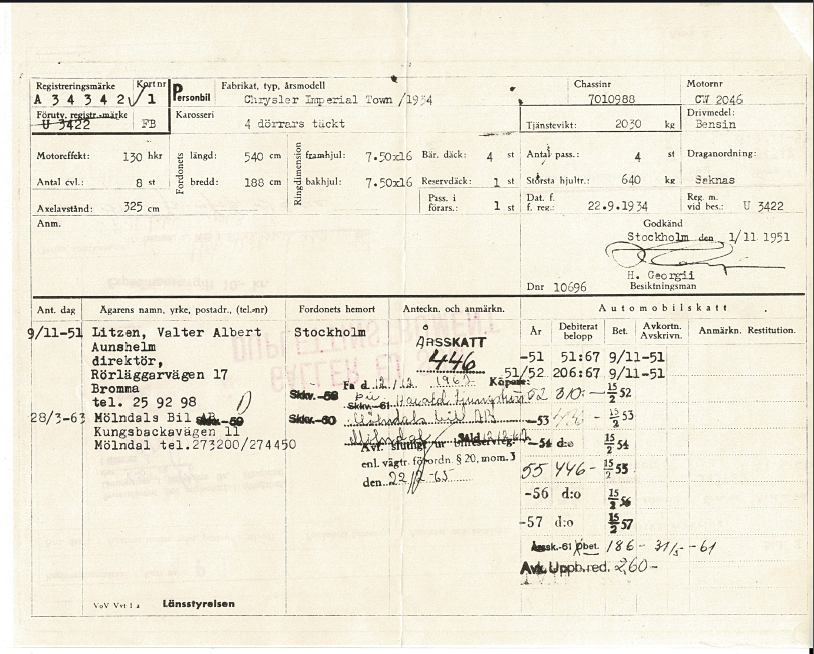 Registreringsmärke Kort nr Personbil Fabrikat, typ, årsmodell Chassinr Motornr
A 34342 1 Chrysler Imperial Town /1934 7010988 CW 2046
Förutv. registr.-märke Karosseri Drivmedel:
U 3422 FB 4 dörrars täckt Tjänstevikt: 2030 kg Bensin
Motoreffekt: 130 hkr Fordonets längd: 540 cm Ringdimension framhjul: 7.50x16 Bär. däck: 4 st Antal pass.: 4 st Draganordning:
Antal cyl.: 8 st bredd: 188 cm bakhjul: 7.50x16 Reservdäck: 1 st Största hjultr.: 640 kg Saknas
Axelavstånd: 325 cm Pass. i förars.: 1 st Dat. f. f. reg.: 22.9.1934 Reg. m. vid bes.: U 3422
Anm. Godkänd
Stockholm den 1/11 1951
H. Georgii
Dnr 10696 Besiktningsman
Ant. dag Ägarens namn, yrke, postadr., (tel.-nr) Fordonets hemort Anteckn. och anmärkn. Automobilskatt
År Debiterat belopp Bet. Avkortn. Avskrivn. Anmärkn. Restitution.
9/11-51 Litzen, Valter Albert Stockholm
Aunshelm ÅRSSKATT -51 51:67 9/11-51
direktör, 446
Rörläggarvägen 17 51/52 206:67 9/11-51
Bromma 52 310:- 15/2 52
tel. 25 92 98 Skkv.-61
28/3-63 Mölndals Bil AB Skkv.-59 Skkv.-60 Mölndals bil AB -53 15/2 53
Kungsbackavägen 11 Mölndal
Mölndal tel.273200/274450 Avf. slutligt ur bilreservreg. -54 d:o 15/2 54
enl. vägtr.förordn. § 20, mom. 3 55 446- 15/2 55
den 22/2-65
-56 d:o 15/2 56
-57 d:o 15/2 57
Årssk.-61 bet. 186- 31/5 -61
Avk. Upph.red. 260-
VoV Vvt 1 a Länsstyrelsen